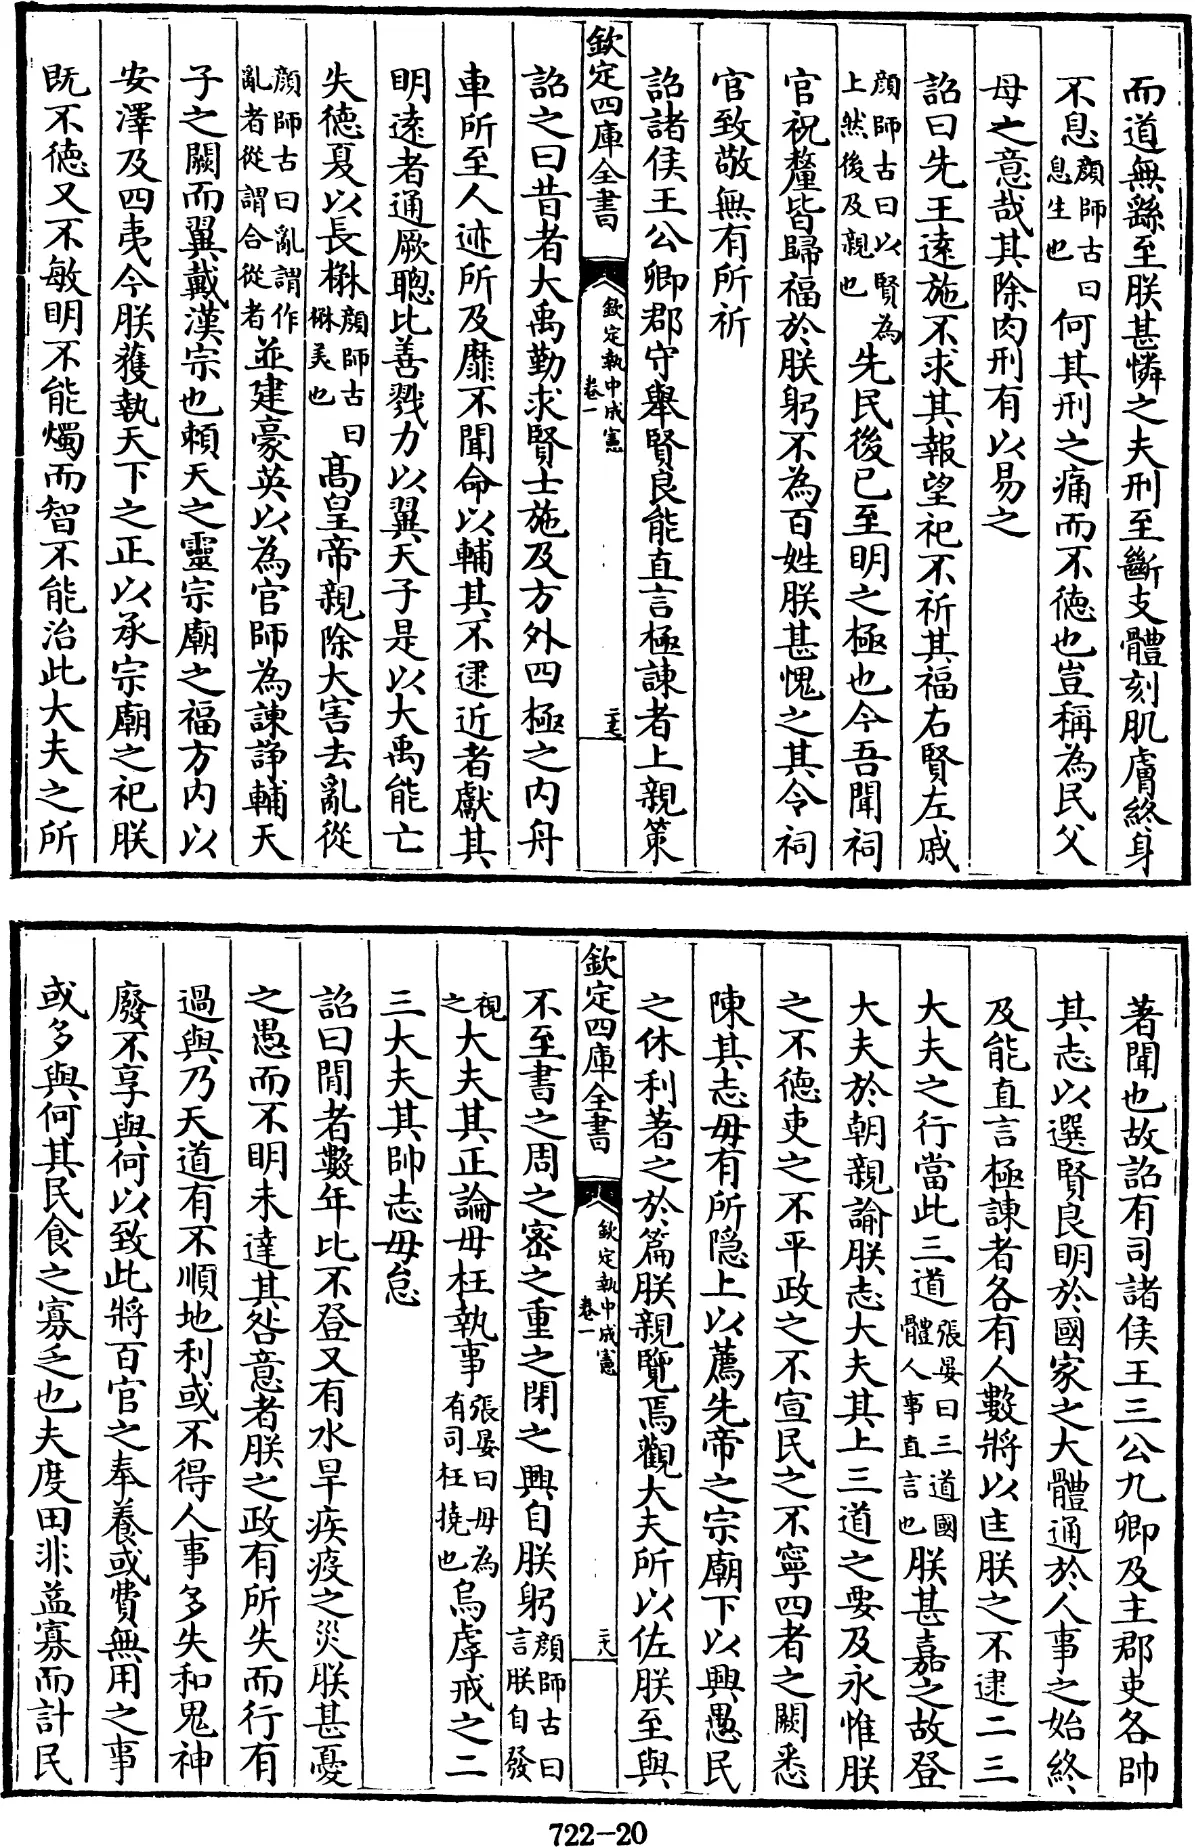 而道無繇至朕甚憐之夫刑至斷支體刻肌膚終身
不息顔師古曰息生也何其刑之痛而不徳也豈稱為民父
母之意哉其除肉刑有以易之
詔曰先王逺施不求其報望祀不祈其福右賢左戚
顔師古曰以賢為上然後及親也先民後已至明之極也今吾聞祠
官祝釐皆歸福於朕躬不為百姓朕甚愧之其令祠
官致敬無有所祈
詔諸侯王公卿郡守舉賢良能直言極諫者上親策
欽定四庫全書
欽定執中成憲
卷一
二十七
詔之曰昔者大禹勤求賢士施及方外四極之内舟
車所至人迹所及靡不聞命以輔其不逮近者獻其
明逺者通厥聰比善戮力以翼天子是以大禹能亡
失徳夏以長楙顔師古曰楙美也髙皇帝親除大害去亂從
顔師古曰亂謂作亂者從謂合從者並建豪英以為官師為諫諍輔天
子之闕而翼戴漢宗也頼天之靈宗廟之福方内以
安澤及四夷今朕獲執天下之正以承宗廟之祀朕
既不徳又不敏明不能燭而智不能治此大夫之所
著聞也故詔有司諸侯王三公九卿及主郡吏各帥
其志以選賢良明於國家之大體通於人事之始終
及能直言極諫者各有人數將以匡朕之不逮二三
大夫之行當此三道張晏曰三道國體人事直言也朕甚嘉之故登
大夫於朝親諭朕志大夫其上三道之要及永惟朕
之不徳吏之不平政之不宣民之不寧四者之闕悉
陳其志毋有所隠上以薦先帝之宗廟下以興愚民
之休利著之於篇朕親覽焉觀大夫所以佐朕至與
欽定四庫全書
欽定執中成憲
卷一
二十八
不至書之周之密之重之閉之興自朕躬顔師古曰言朕自發
視之大夫其正論毋枉執事張晏曰毋為有司枉撓也烏虖戒之二
三大夫其帥志毋怠
詔曰間者數年比不登又有水旱疾疫之災朕甚憂
之愚而不明未達其咎意者朕之政有所失而行有
過與乃天道有不順地利或不得人事多失和鬼神
廢不享與何以致此將百官之奉養或費無用之事
或多與何其民食之寡乏也夫度田非益寡而計民
722-20